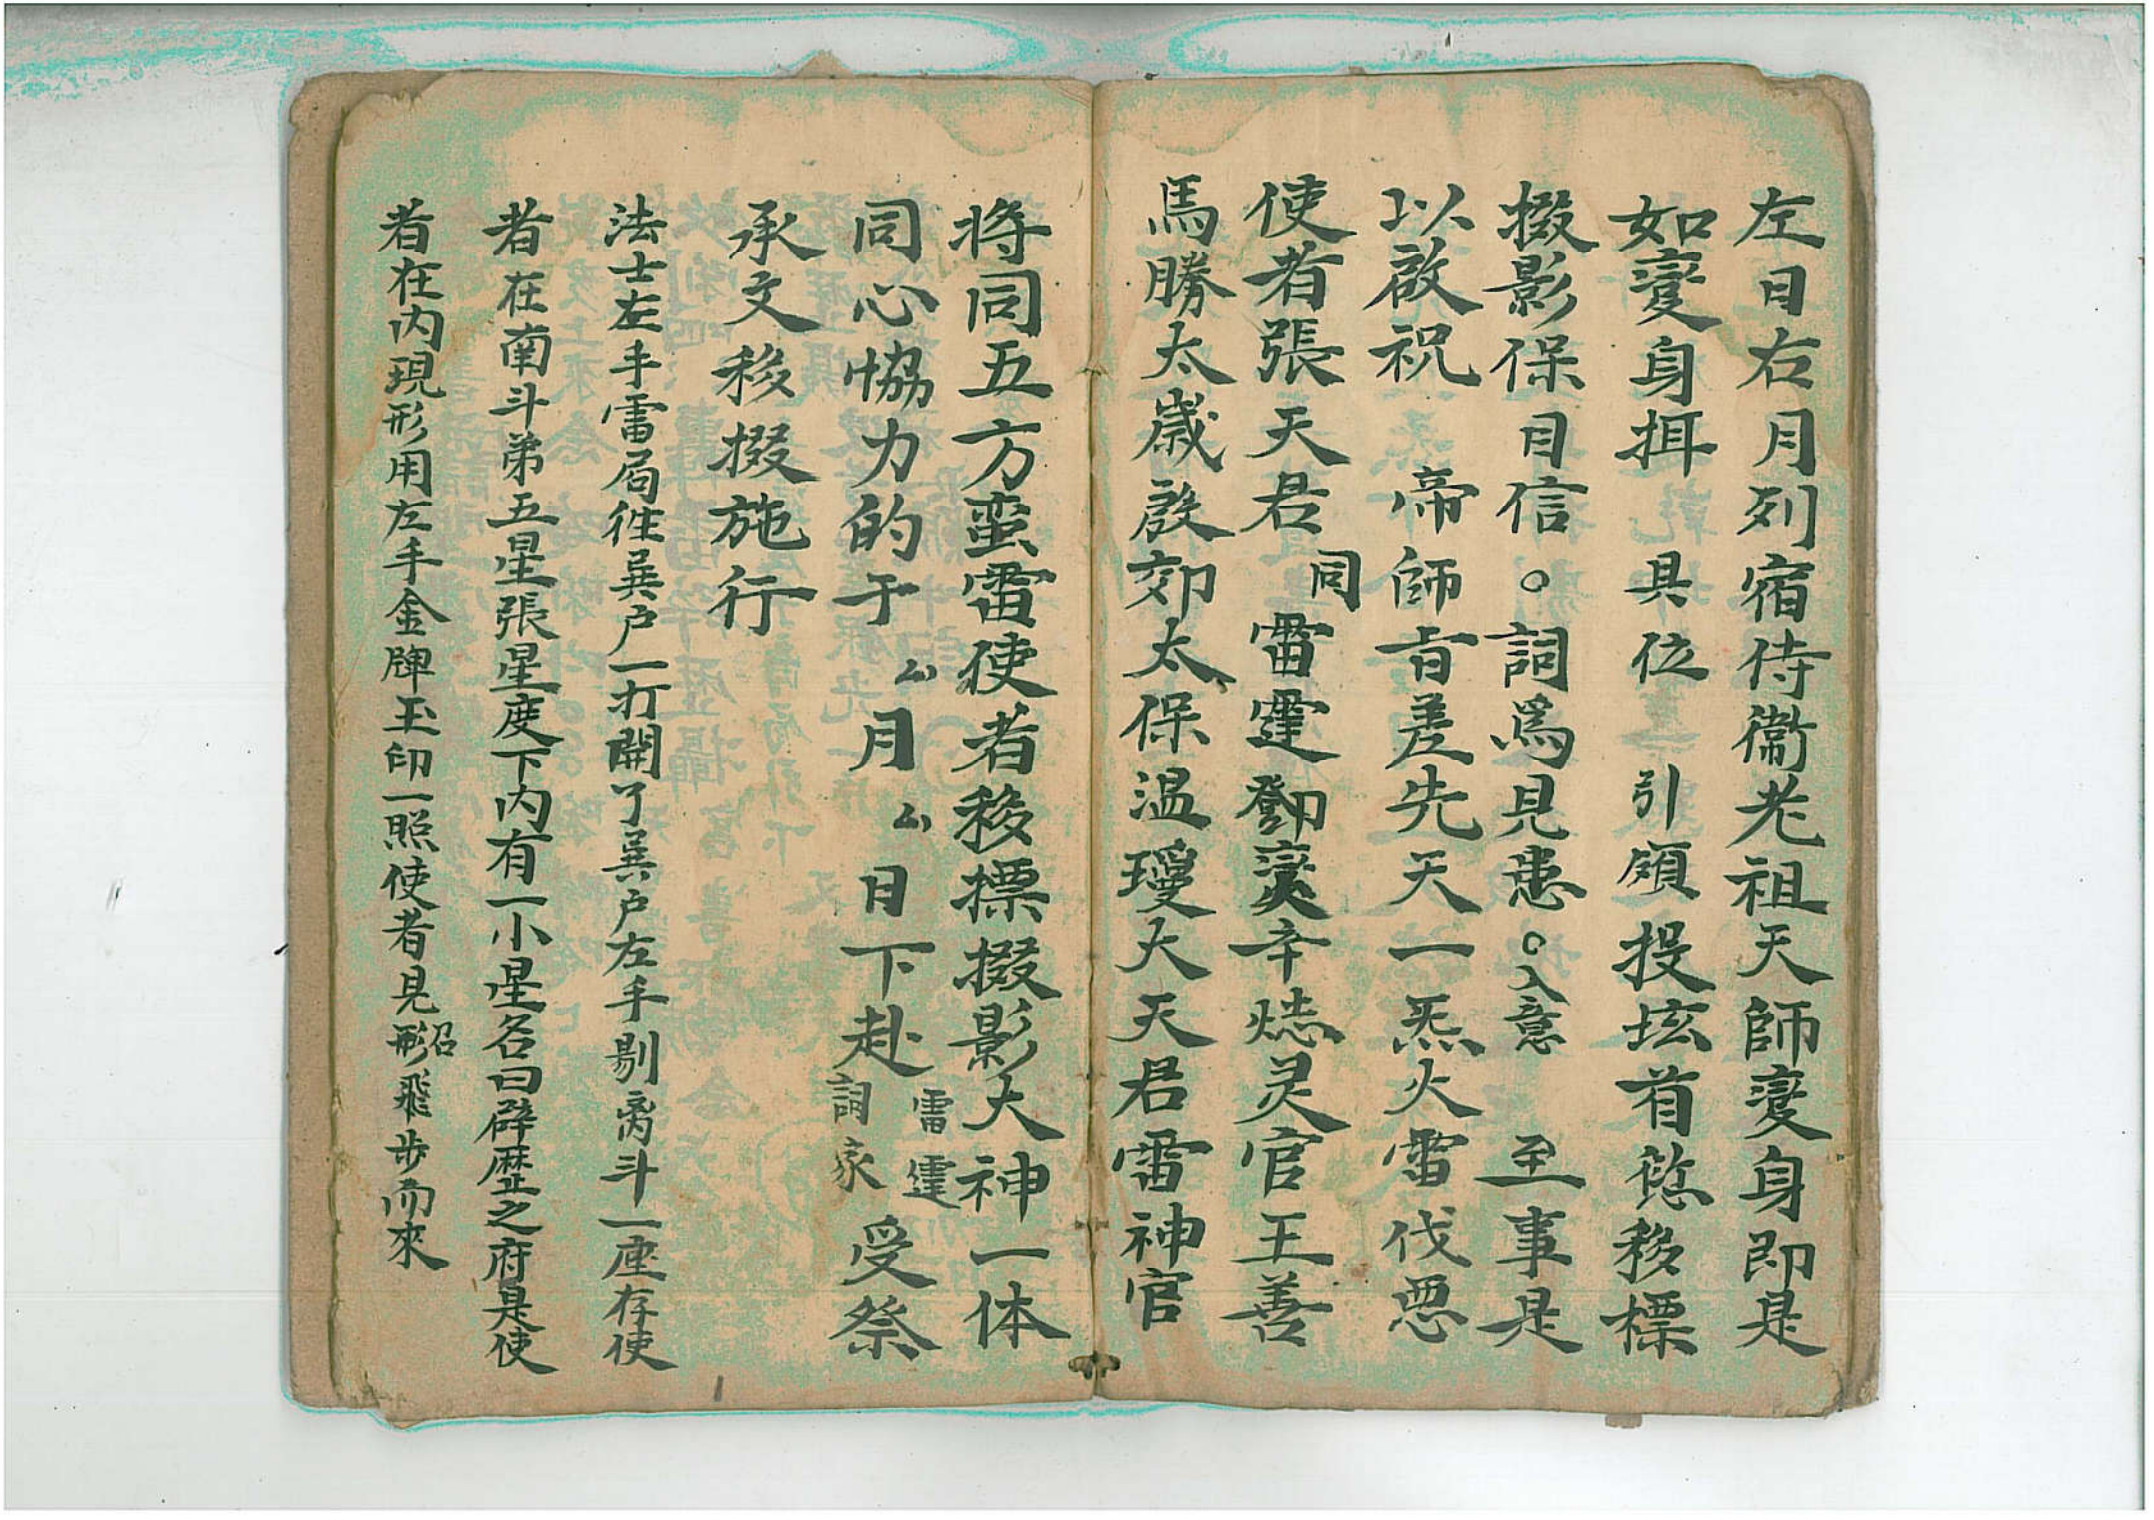 左日右月列宿侍衞老祖天師变身即是
如变身揖 具位 引領投坛首愆移標
掇影保目信。詞爲見患。入意 至事是
以啟祝 帝師旨差先天一炁火雷伐惡
使者張天君 同 雷霆鄧燮辛𤈷灵官王善
馬勝太歲殷郊太保温瓊大天君雷神官
将同五方蛮雷使者移摽掇影大神一体
同心恊力的于 厶月 厶日下赴 雷霆 詞家 受祭
承文移掇施行
法士左手雷局往巽户一打開了巽户左手剔离斗一座存使
者在南斗弟五星張星度下内有一小星名曰辟歴之府是使
者在内現形用左手金牌玉印一照使者見形召飛步而來